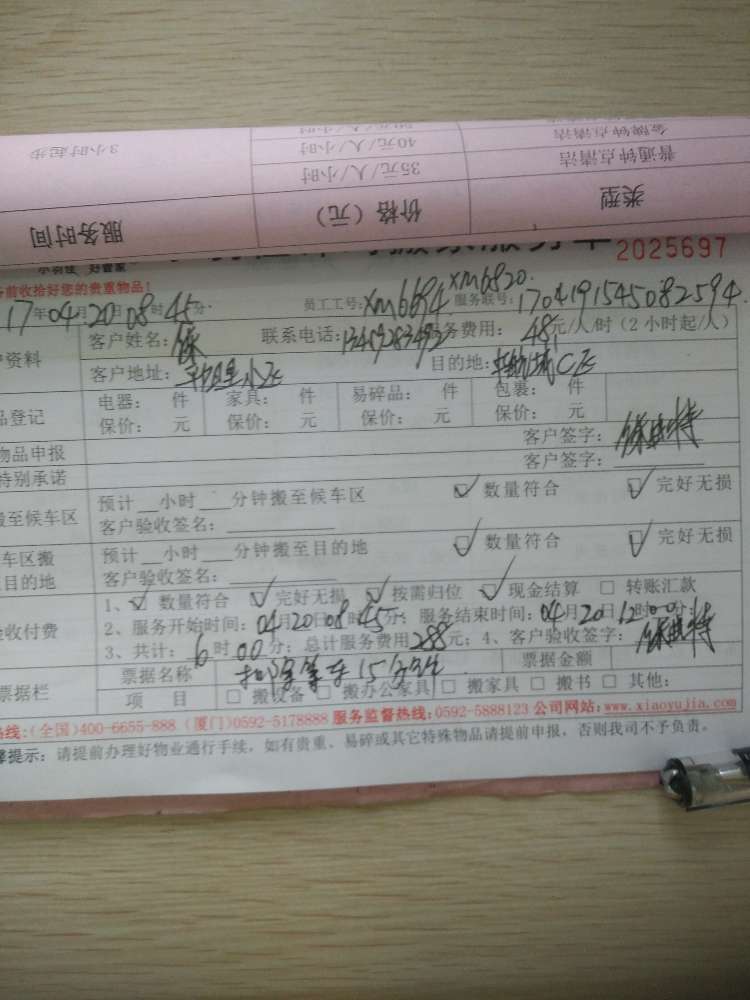 金牌钟点清洁
普通钟点清洁 40元/人/小时 3小时起步
35元/人/小时
类型 价格（元） 服务时间
2025697
前收拾好您的贵重物品!
17年04月20日08时45分. 员工工号: xm6694 xm6820. 服务联号: 1704191545082594.
客户资料 客户姓名: 联系电话: 服务费用: 48元/人/时 (2小时起/人)
客户地址: 目的地:
品登记 电器: 件 家具: 件 易碎品: 件 包裹: 件
保价: 元 保价: 元 保价: 元 保价: 元
物品申报 客户签字:
特别承诺 客户签字:
搬至候车区 预计__小时___分钟搬至候车区 ☑ 数量符合 ☑ 完好无损
客户验收签名:
车区搬 预计__小时___分钟搬至目的地 ☑ 数量符合 ☑ 完好无损
目的地 客户验收签名:
验收付费 1、☑ 数量符合 ☑ 完好无损 ☑ 按需归位 ☑ 现金结算 □ 转账汇款
2、服务开始时间: 04月20日08时45分; 服务结束时间: 04月20日12时00分;
3、共计: 6时00分; 总计服务费用288元; 4、客户验收签字:
票据栏 票据名称 等车15分钟 票据金额
项 目 □ 搬设备 □ 搬办公家具 □ 搬家具 □ 搬书 □ 其他:
热线:(全国)400-6655-888 (厦门)0592-5178888 服务监督热线:0592-5888123 公司网站:www.xiaoyujia.com
提示: 请提前办理好物业通行手续, 如有贵重、易碎或其它特殊物品请提前申报, 否则我司不予负责。